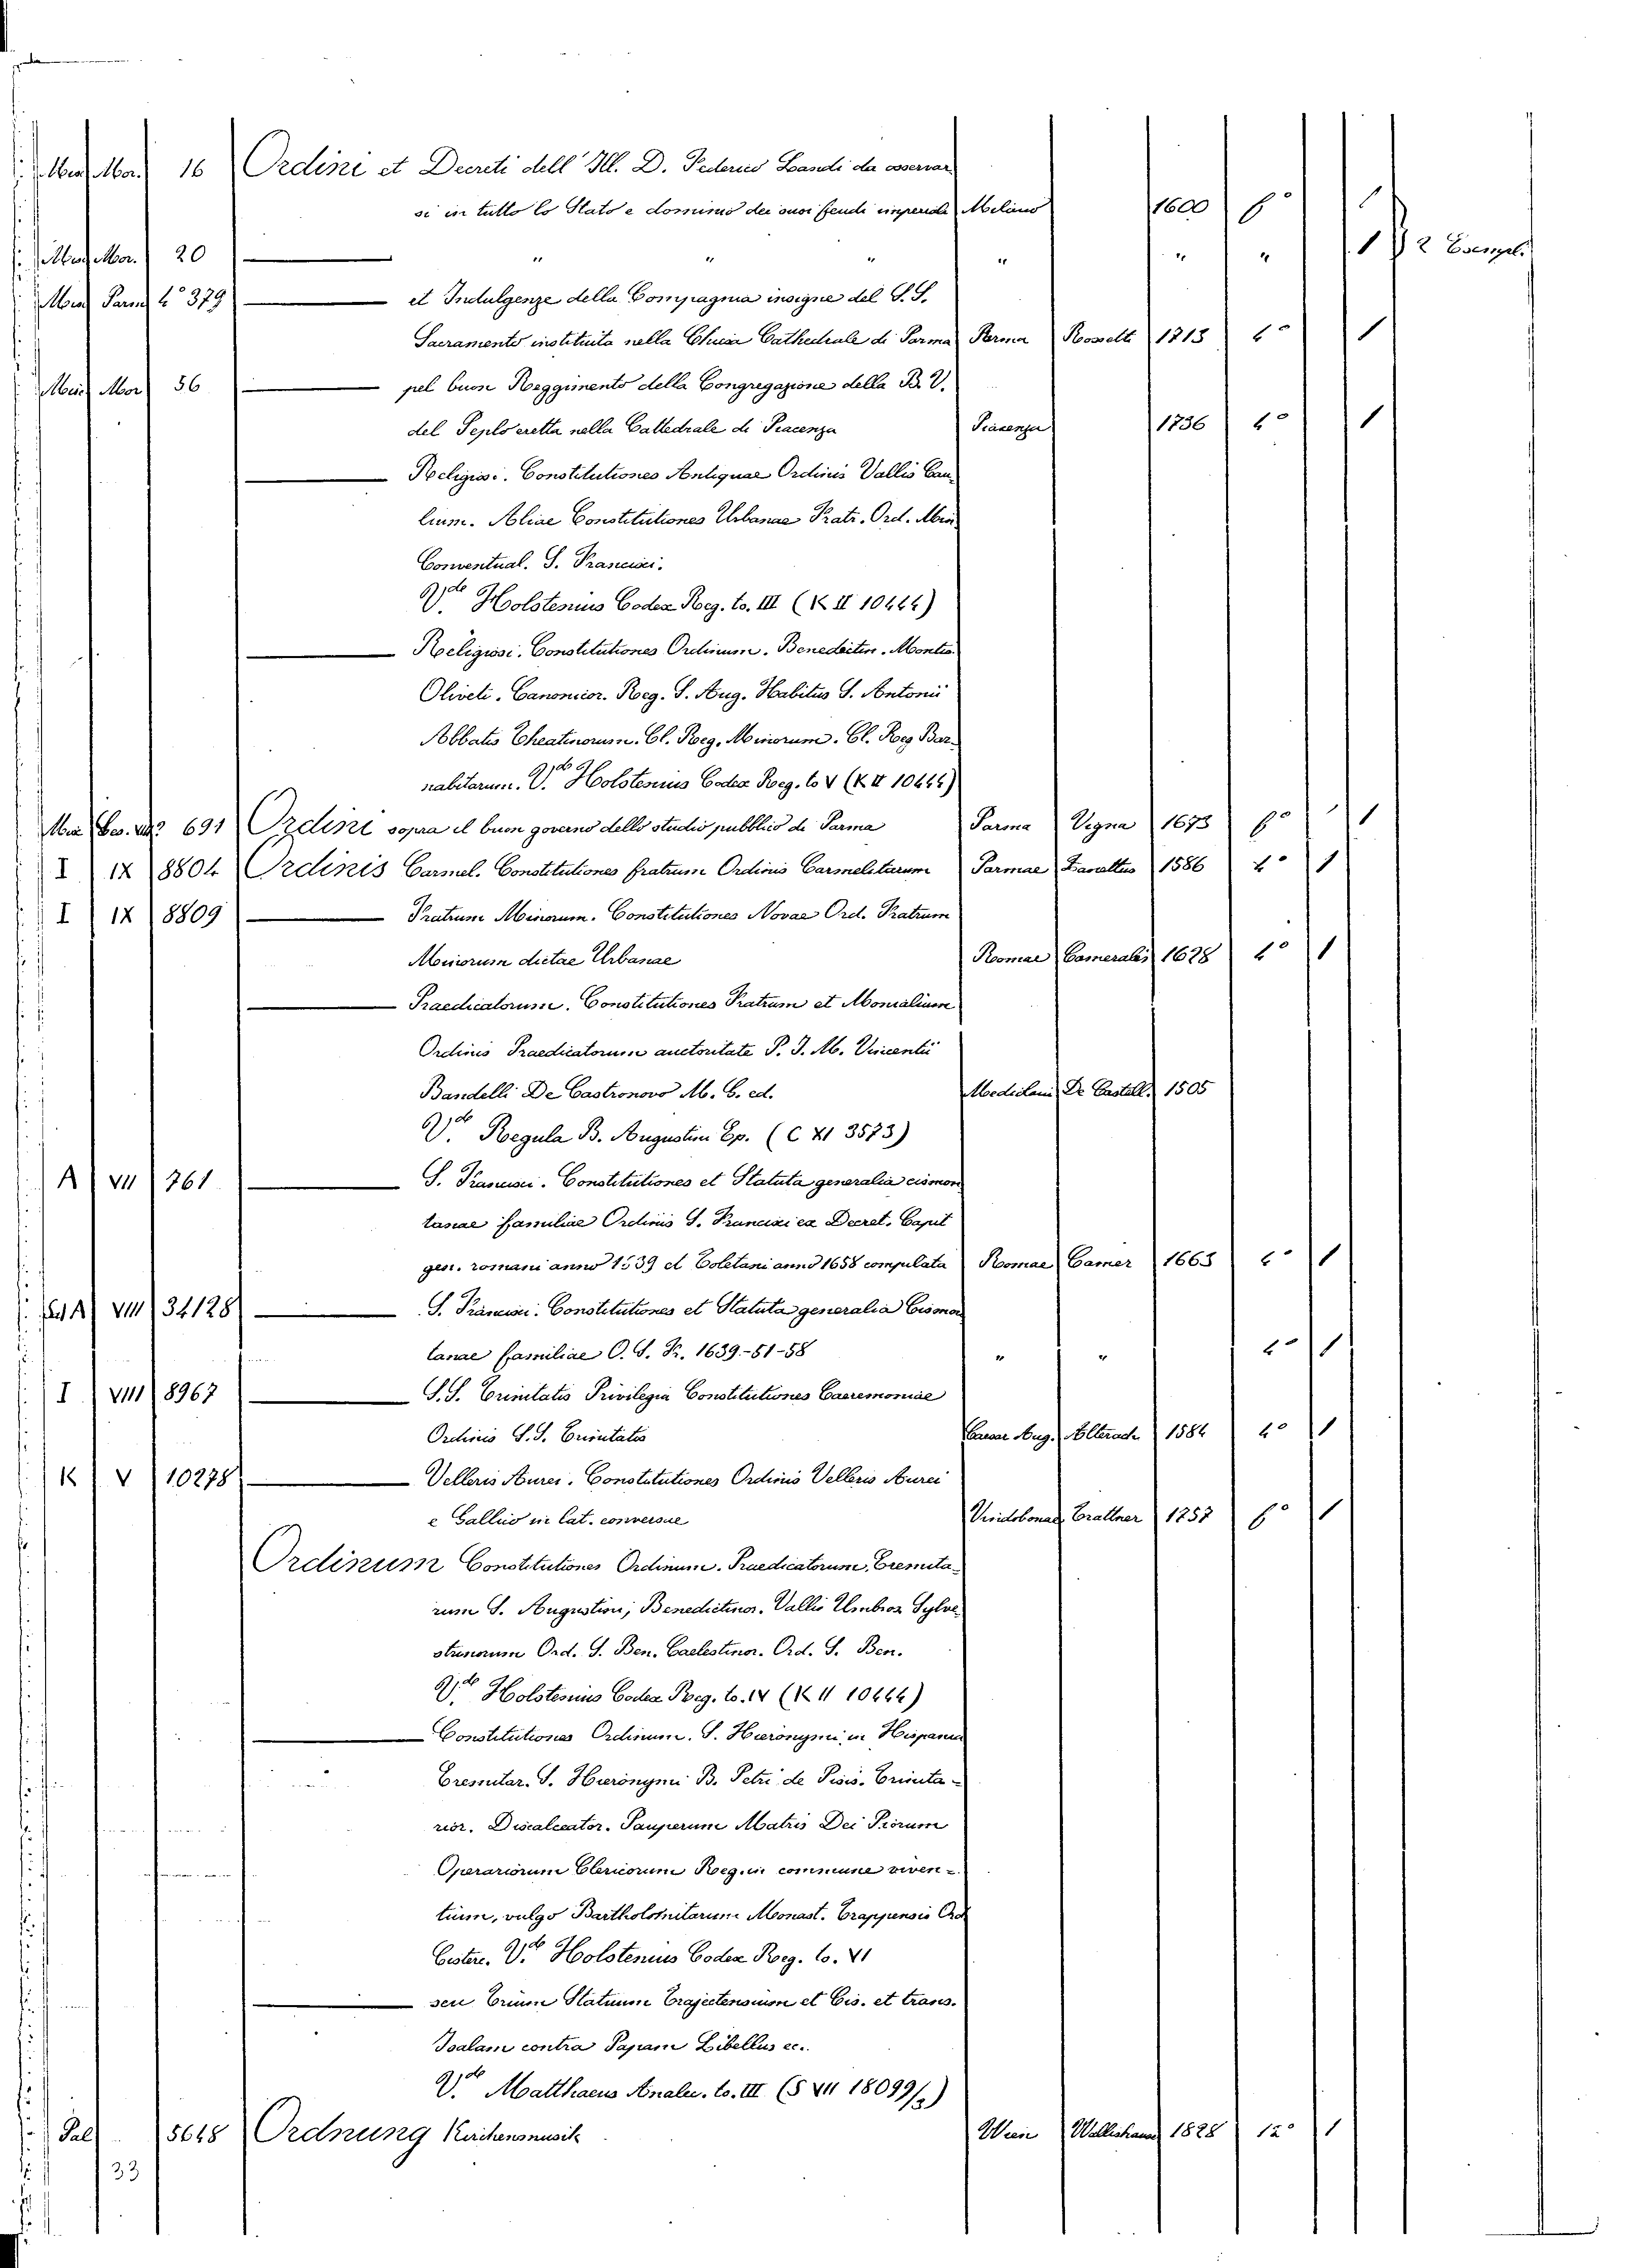 Misc Mor. 16 Ordini et Decreti dell' Ill. D. Federico Landi da osservar
si in tutto lo Stato e dominio dei suoi feudi imperiali Milano 1600 1
Misc Mor. 20 " " " " " " 1 2 Esempl.
Misc Parm 4° 379 et Indulgenze della Compagnia insigne del S. S.
Sacramento instituita nella Chiesa Cathedrale di Parma Parma Rosselli 1713 4° 1
Misc Mor 56 pel buon Reggimento della Congregazione della B. V.
del Peplo eretta nella Cattedrale di Piacenza Piacenza 1736 4° 1
Religiosi. Constitutiones Antiquae Ordinis Vallis Cau
lium. Aliae Constitutiones Urbanae Fratr. Ord. Min
Conventual. S. Francisci.
V.de Holstenius Codex Reg. to. III (K II 10444)
Religiosi. Constitutiones Ordinum. Benedictin. Montis
Oliveti. Canonicor. Reg. S. Aug. Habitus S. Antonii
Abbatis Theatinorum. Cl. Reg. Minorum. Cl. Reg Bar
nabitarum. V.de Holstenius Codex Reg. to V (K II 10444)
691 Ordini sopra il buon governo dello studio pubblico di Parma Parma Vigna 1673 6° 1
I IX 8804 Ordinis Carmel. Constitutiones fratrum Ordinis Carmelitarum Parmae 1586 4° 1
I IX 8809 Fratrum Minorum. Constitutiones Novae Ord. Fratrum
Minorum dictae Urbanae Romae Cameralis 1628 4° 1
Praedicatorum. Constitutiones Fratrum et Monialium
Ordinis Praedicatorum auctoritate P. F. M. Vincentii
Bandelli De Castronovo M. G. ed. Mediolani De Castell. 1505
V.de Regula B. Augustini Ep. (C XI 3573)
A VII 761 S. Francisci. Constitutiones et Statuta generalia cismon
tanae familiae Ordinis S. Francisci ex Decret. Capit
gen. romani anno 1639 et Toletani anno 1658 compilata Romae Camer 1663 4° 1
VIII 34128 S. Francisci. Constitutiones et Statuta generalia Cismon
tanae familiae O. S. Fr. 1639-51-58 " " 4° 1
I VIII 8967 S.S. Trinitatis Privilegia Constitutiones Caeremoniae
Ordinis S.S. Trinitatis Caesar Aug. Alterach 1584 4° 1
K V 10278 Velleris Aurei. Constitutiones Ordinis Velleris Aurei
e Gallico in lat. conversae Vindobonae Trattner 1757 6° 1
Ordinum Constitutiones Ordinum. Praedicatorum, Eremita
rum S. Augustini; Benedictinor. Vallis Umbros Sylve
strinorum Ord. S. Ben. Caelestinor. Ord. S. Ben.
V.de Holstenius Codex Reg. to. IV (K II 10444)
Constitutiones Ordinum. S. Hieronymi in Hispania
Eremitar. S. Hieronymi B. Petri de Pisis. Trinita-
rior. Discalceator. Pauperum Matris Dei Piorum
Operariorum Clericorum Reg. in commune viven-
tium, vulgo Bartholomitarum Monast. Trappensis Ord
Cisterc. V.de Holstenius Codex Reg. to. VI
seu Trium Statuum Trajectensium et Cis. et trans.
Isalam contra Papam Libellus ec.
V.de Matthaeus Analec. to. III (S VII 18099/2)
Pal 5648 Ordnung Kirchenmusik Wien Wallishaus 1828 12° 1
33